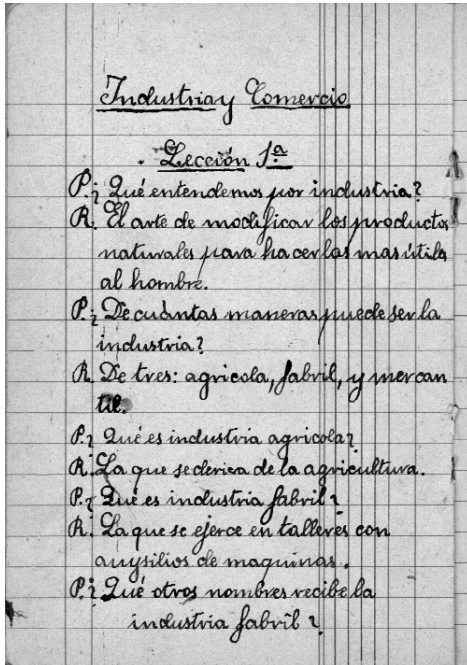 Industria y Comercio
Lección 1ª
P. ¿Qué entendemos por industria?
R. El arte de modificar los productos
naturales para hacerlos mas útiles
al hombre.
P. ¿De cuántas maneras puede ser la
industria?
R. De tres: agricola, fabril, y mercan
til.
P. ¿Qué es industria agricola?
R. La que se deriva de la agricultura.
P. ¿Qué es industria fabril?
R. La que se ejerce en talleres con
auysilios de maquinas.
P. ¿Qué otros nombres recibe la
industria fabril?